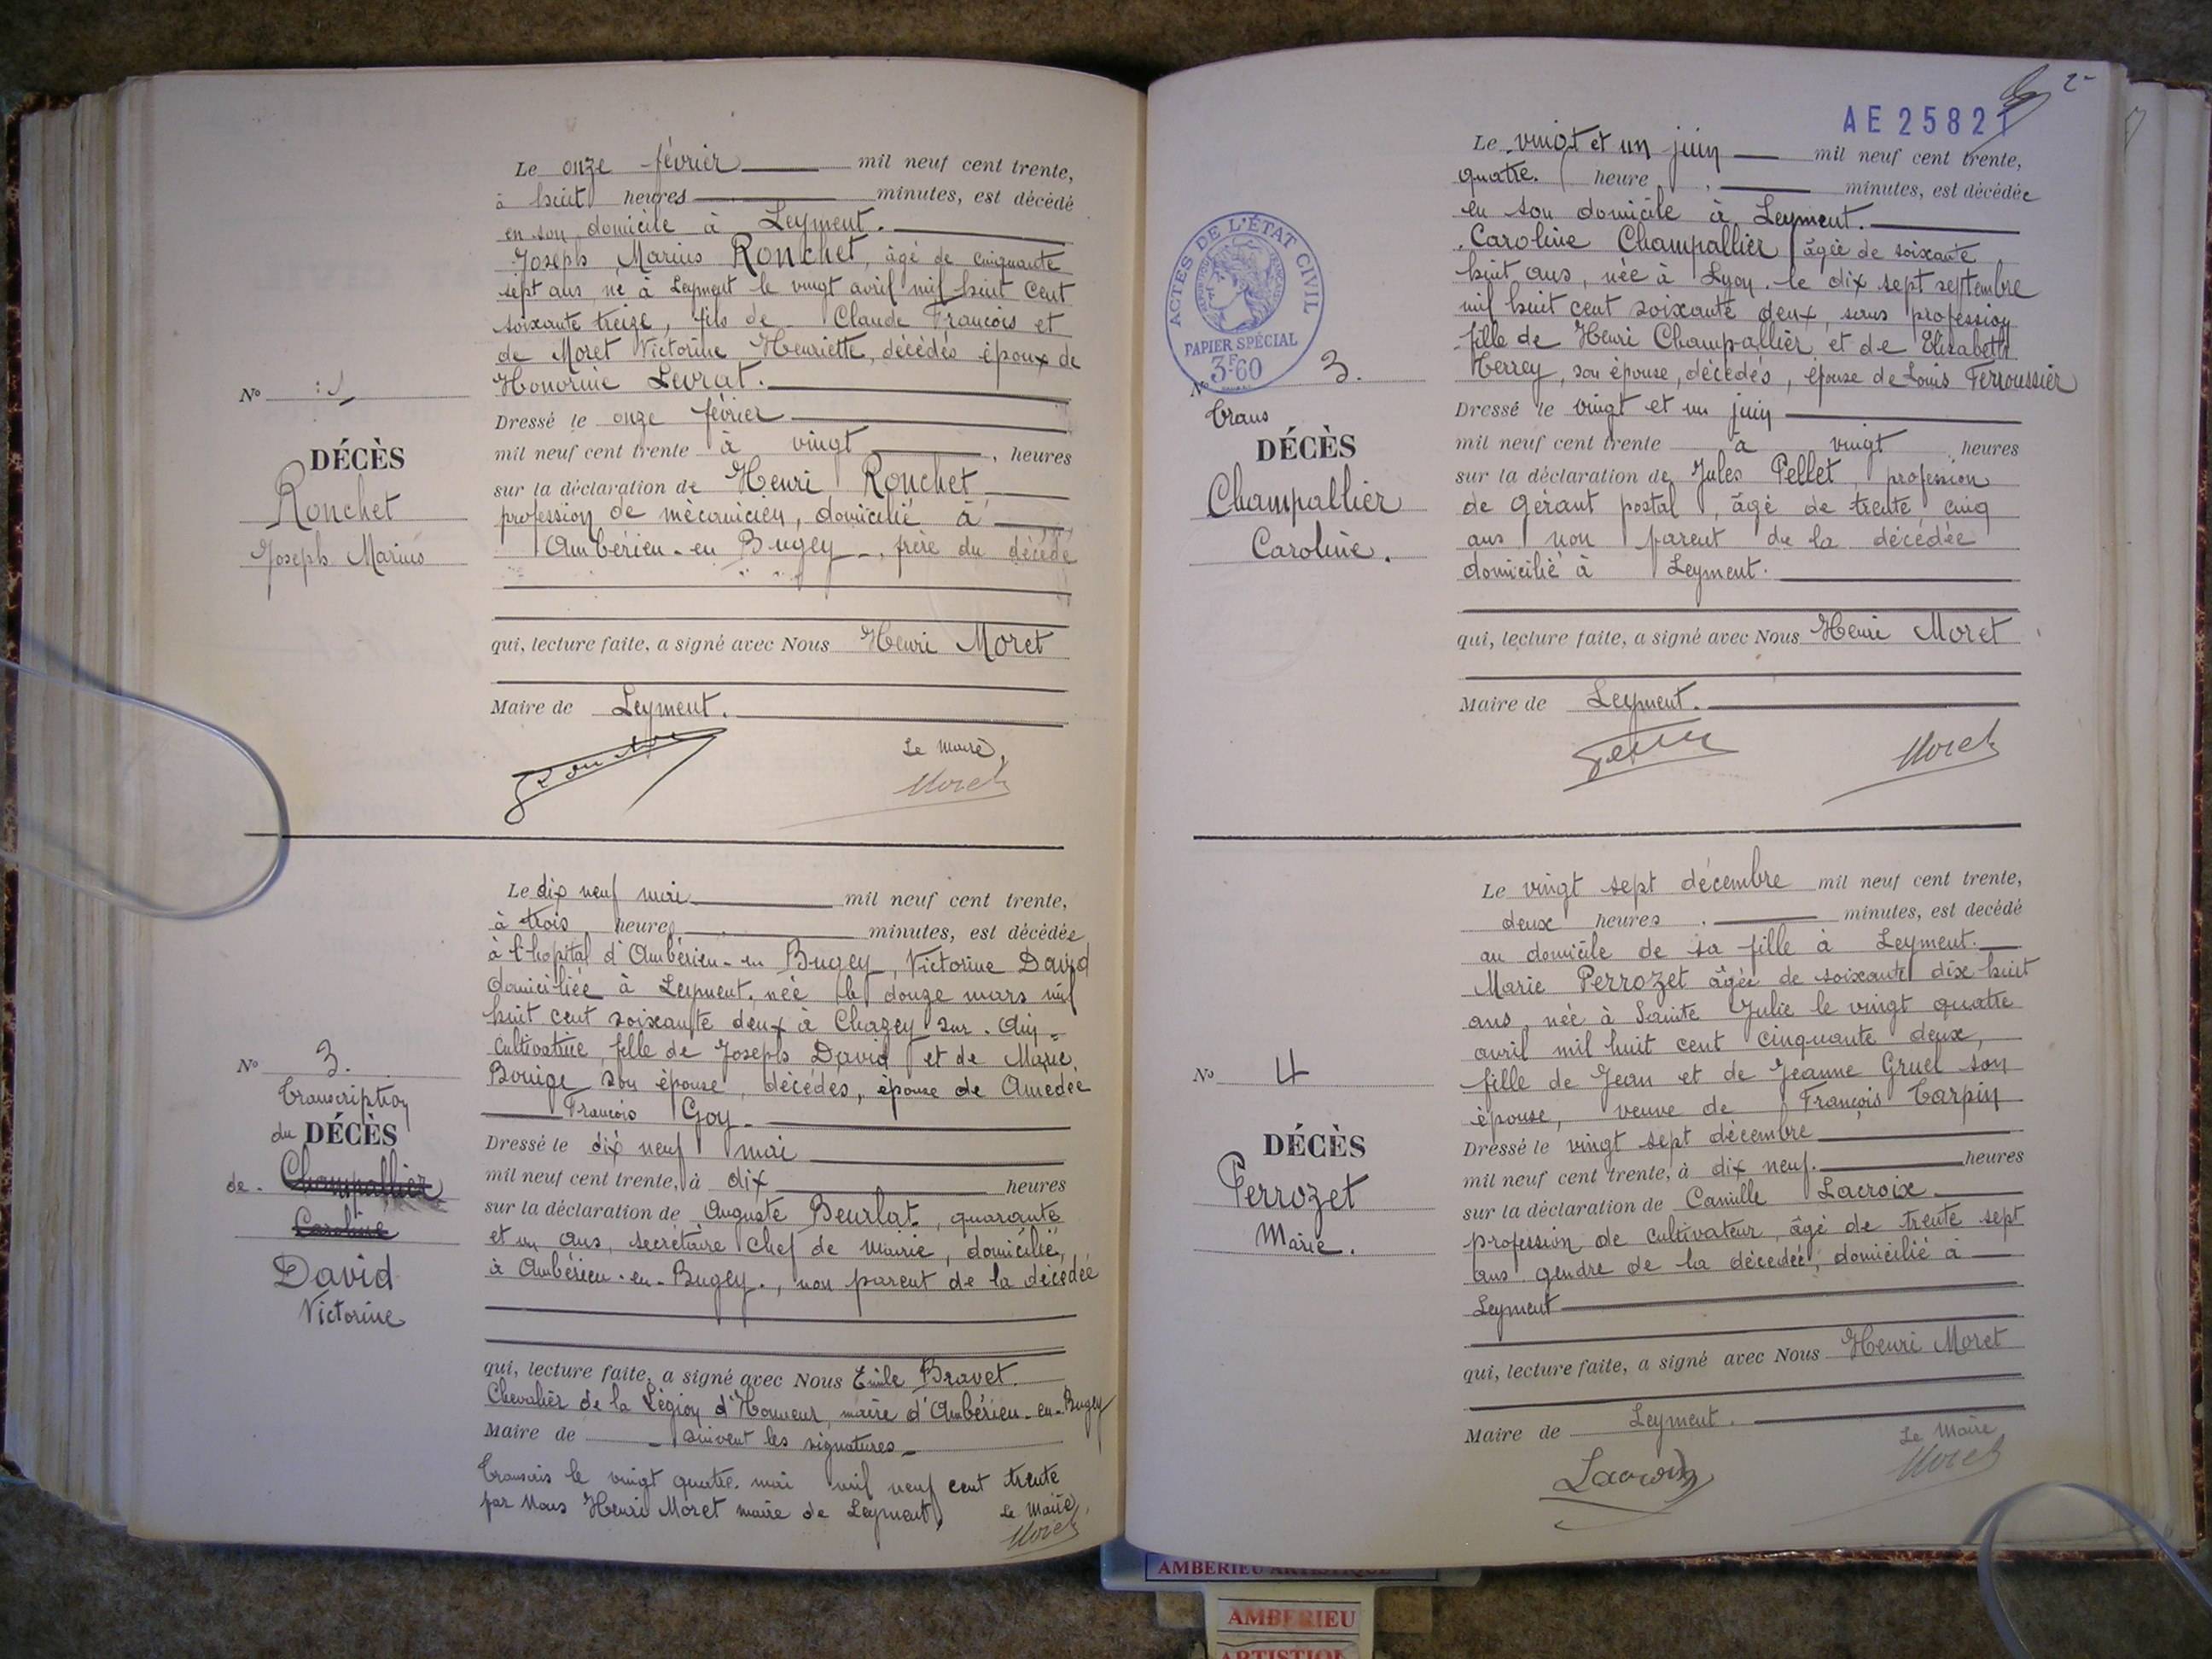 Le onze février mil neuf cent trente,
à huit heures minutes, est décédé
en son domicile à Leyment.
Joseph Marius Ronchet, âgé de cinquante
sept ans, né à Leyment le vingt avril mil huit cent
soixante treize, fils de Claude François et
de Moret Victorine Henriette, décédés époux de
Honorine Levrat.
Dressé le onze février
mil neuf cent trente à vingt heures
sur la déclaration de Henri Ronchet
profession de mécanicien, domicilié à
Ambérieu-en Bugey, frère du décédé
qui, lecture faite, a signé avec Nous Henri Moret
Maire de Leyment.
Le Maire,
Moret
No
DÉCÈS
Ronchet
Joseph Marius
Le dix neuf mai mil neuf cent trente,
à trois heures minutes, est décédée
à l'hopital d'Ambérieu-en Bugey, Victorine David
domiciliée à Leyment, née le douze mars mil
huit cent soixante deux à Chazey sur. Ain-
Cultivatrice, fille de Joseph David et de Marie
Bouige son épouse, décédés, épouse de Amédée
François Goy-
Dressé le dix neuf mai
mil neuf cent trente, à dix heures
sur la déclaration de Auguste Beurlat, quarante
et un ans, secrétaire chef de Mairie, domicilié,
à Ambérieu-en-Bugey., non parent de la décédée
qui, lecture faite, a signé avec Nous Emile Bravet.
Chevalier de la Légion d'Honneur, maire d'Ambérieu-en-Bugey
Maire de - suivent les signatures-
Transcris le vingt quatre. mai mil neuf cent trente
par Nous Henri Moret maire de Leyment,
Le Maire,
Moret
No 3.
Transcription
du DÉCÈS
de. Champallier
Caroline
David
Victorine
2
AE 25821
Le vingt et un juin mil neuf cent trente,
quatre. heure minutes, est décédée
en son domicile à Leyment.
Caroline Champallier âgée de soixante
huit ans, née à Lyon. le dix sept septembre
mil huit cent soixante deux, sans profession
fille de Henri Champallier et de Elisabeth
Herrey, son épouse, décédés, épouse de Louis Ferroussier
Dressé le vingt et un juin
mil neuf cent trente à vingt heures
sur la déclaration de Jules Pellet, profession
de gérant postal, âgé de trente cinq
ans non parent de la décédée
domicilié à Leyment.
qui, lecture faite, a signé avec Nous Henri Moret
Maire de Leyment.
Moret
ACTES DE L'ÉTAT CIVIL
RÉPUBLIQUE FRANÇAISE
PAPIER SPÉCIAL
3F60
No 3.
Trans
DÉCÈS
Champallier
Caroline.
Le vingt sept décembre mil neuf cent trente,
deux heures minutes, est decédé
au domicile de sa fille à Leyment.
Marie Perrozet âgée de soixante dix huit
ans, née à Sainte Julie le vingt quatre
avril mil huit cent cinquante deux,
fille de Jean et de Jeanne Gruel son
épouse, veuve de François Tarpin
Dressé le vingt sept décembre
mil neuf cent trente, à dix neuf. heures
sur la déclaration de Camille Lacroix
profession de cultivateur, âgé de trente sept
ans. gendre de la décédée, domicilié à
Leyment
qui, lecture faite, a signé avec Nous Henri Moret
Maire de Leyment.
Le Maire
Lacroix
Moret
No 4
DÉCÈS
Perrozet
Marie.
AMBERIEU ARTISTIQUE
AMBERIEU
ARTISTIQU